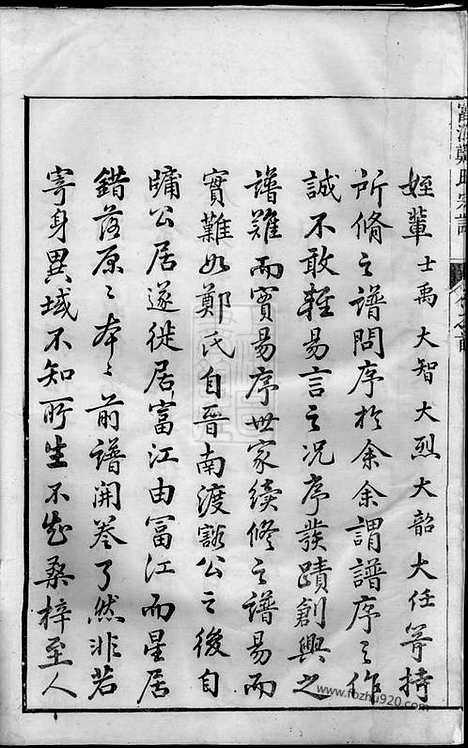 姪輩士禹大智大烈大韶大任等持
所脩之譜問序於余余謂譜序之作
誠不敢輕易言之況序發蹟創興之
譜難而實易序世家續修之譜易而
實難如鄭氏自晉南渡谿公之後自
公居遂徙居富江由富江而星居
錯落原〻本〻前譜開卷了然非若
寄身異域不知所生不忘桑梓至人
富江鄭氏宗譜
www.fozhu920.com